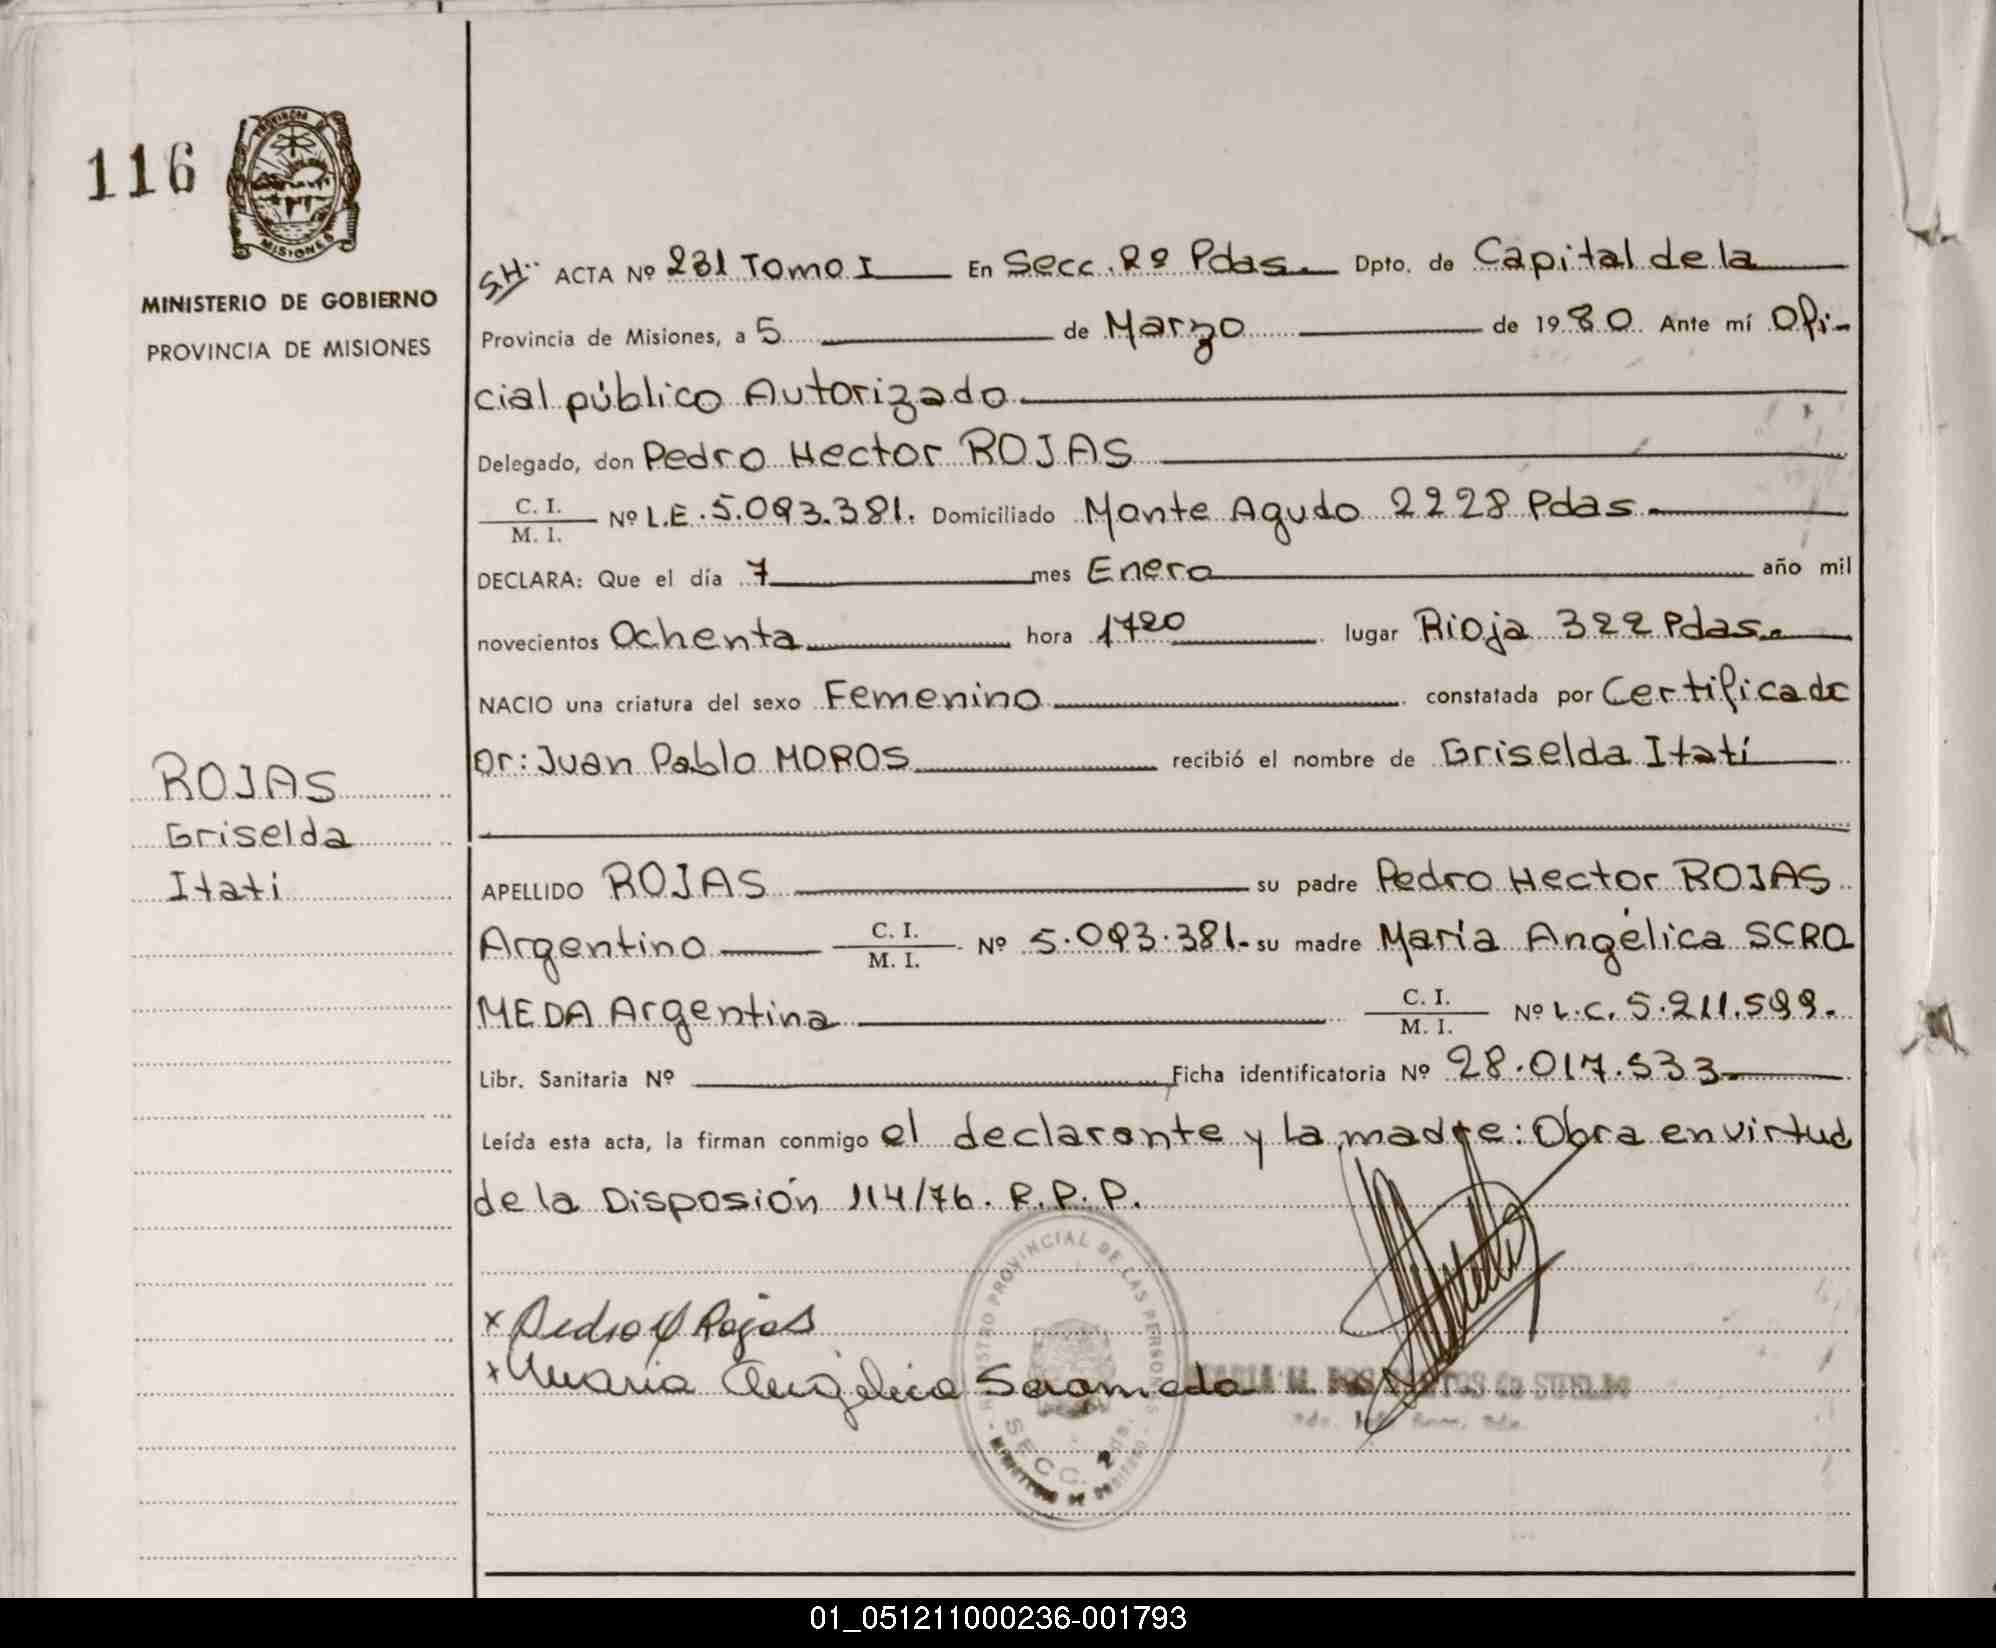 116
PROVINCIA DE
MISIONES
MINISTERIO DE GOBIERNO
PROVINCIA DE MISIONES
SH ACTA Nº 231 Tomo I En Secc. 2º Pdas. Dpto. de Capital de la
Provincia de Misiones, a 5 de Marzo de 1980. Ante mí Ofi-
cial público Autorizado
Delegado, don Pedro Hector ROJAS
C. I.
M. I. Nº L.E. 5.093.381. Domiciliado Monte Agudo 2228 Pdas.
DECLARA: Que el día 7 mes Enero año mil
novecientos Ochenta hora 1720 lugar Rioja 322 Pdas.
NACIO una criatura del sexo Femenino constatada por Certificado
Dr: Juan Pablo MOROS recibió el nombre de Griselda Itatí
ROJAS
Griselda
Itati
APELLIDO ROJAS su padre Pedro Hector ROJAS
Argentino C. I.
M. I. Nº 5.093.381. su madre María Angélica SCRO
MEDA Argentina C. I.
M. I. Nº L.C. 5.211.599.
Libr. Sanitaria Nº Ficha identificatoria Nº 28.017.533
Leída esta acta, la firman conmigo el declarante y la madre: Obra en virtud
de la Disposión 114/76. R.P.P.
x Pedro H Rojas
x Maria Angélica Scromeda
REGISTRO PROVINCIAL DE LAS PERSONAS
SECC. 2 Pds.
MINISTERIO DE GOBIERNO
01_051211000236-001793